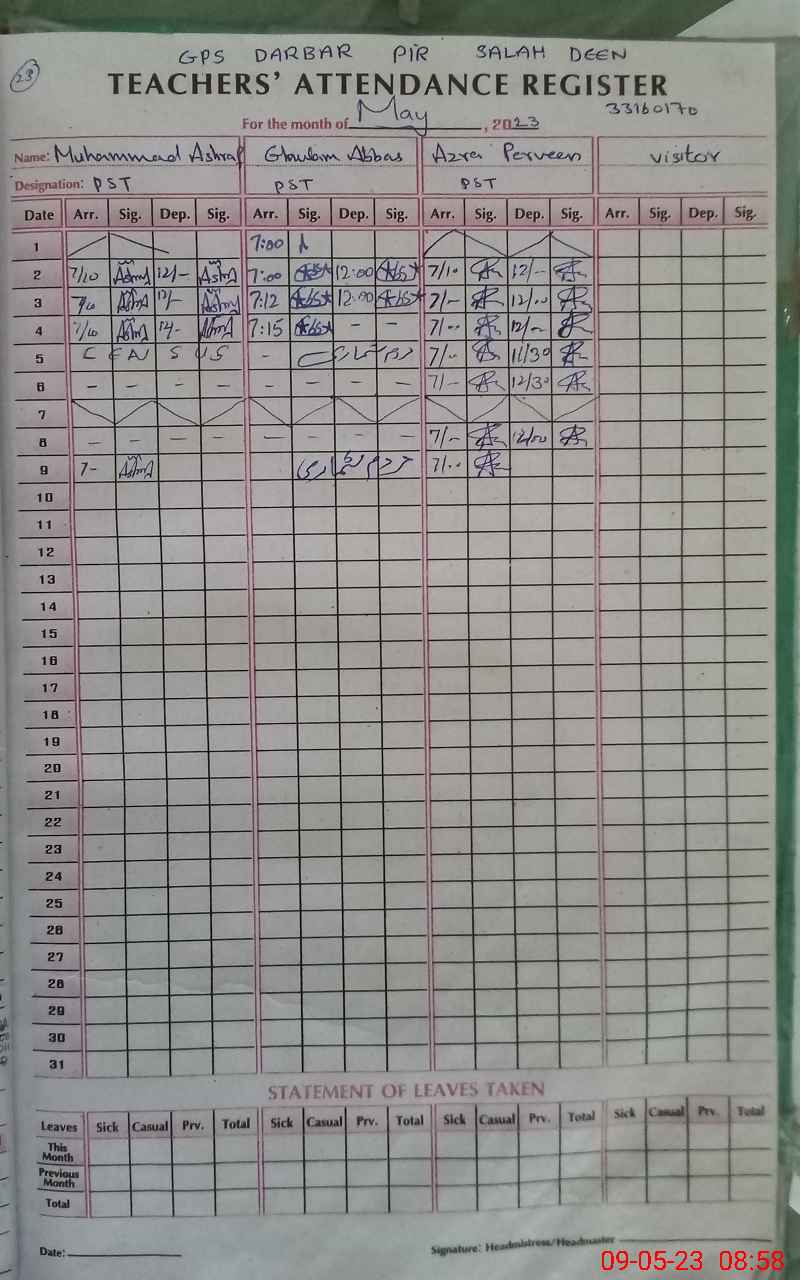 23
GPS DARBAR PIR SALAH DEEN
TEACHERS' ATTENDANCE REGISTER
33160170
For the month of May, 2023
Name: Muhammad Ashraf Ghulam Abbas Azra Perveen visitor
Designation: PST PST PST
Date Arr. Sig. Dep. Sig. Arr. Sig. Dep. Sig. Arr. Sig. Dep. Sig. Arr. Sig. Dep. Sig.
1 7:00
2 7/10 12/- 7:00 12:00 7/10 12/-
3 12/- 7:12 12:00 7/- 12/00
4 12/- 7:15 - - 7/00 12/-
5 - 7/- 11/30
6 - - - - - - - - 7/- 12/30
7
8 - - - - - - - - 7/- 12/00
9 7- مردم شماری 7/00
10
11
12
13
14
15
16
17
18
19
20
21
22
23
24
25
26
27
28
29
30
31
STATEMENT OF LEAVES TAKEN
Leaves Sick Casual Prv. Total Sick Casual Prv. Total Sick Casual Prv. Total Sick Casual Prv. Total
This Month
Previous Month
Total
Date:
Signature: Headmistress/Headmaster
09-05-23 08:58